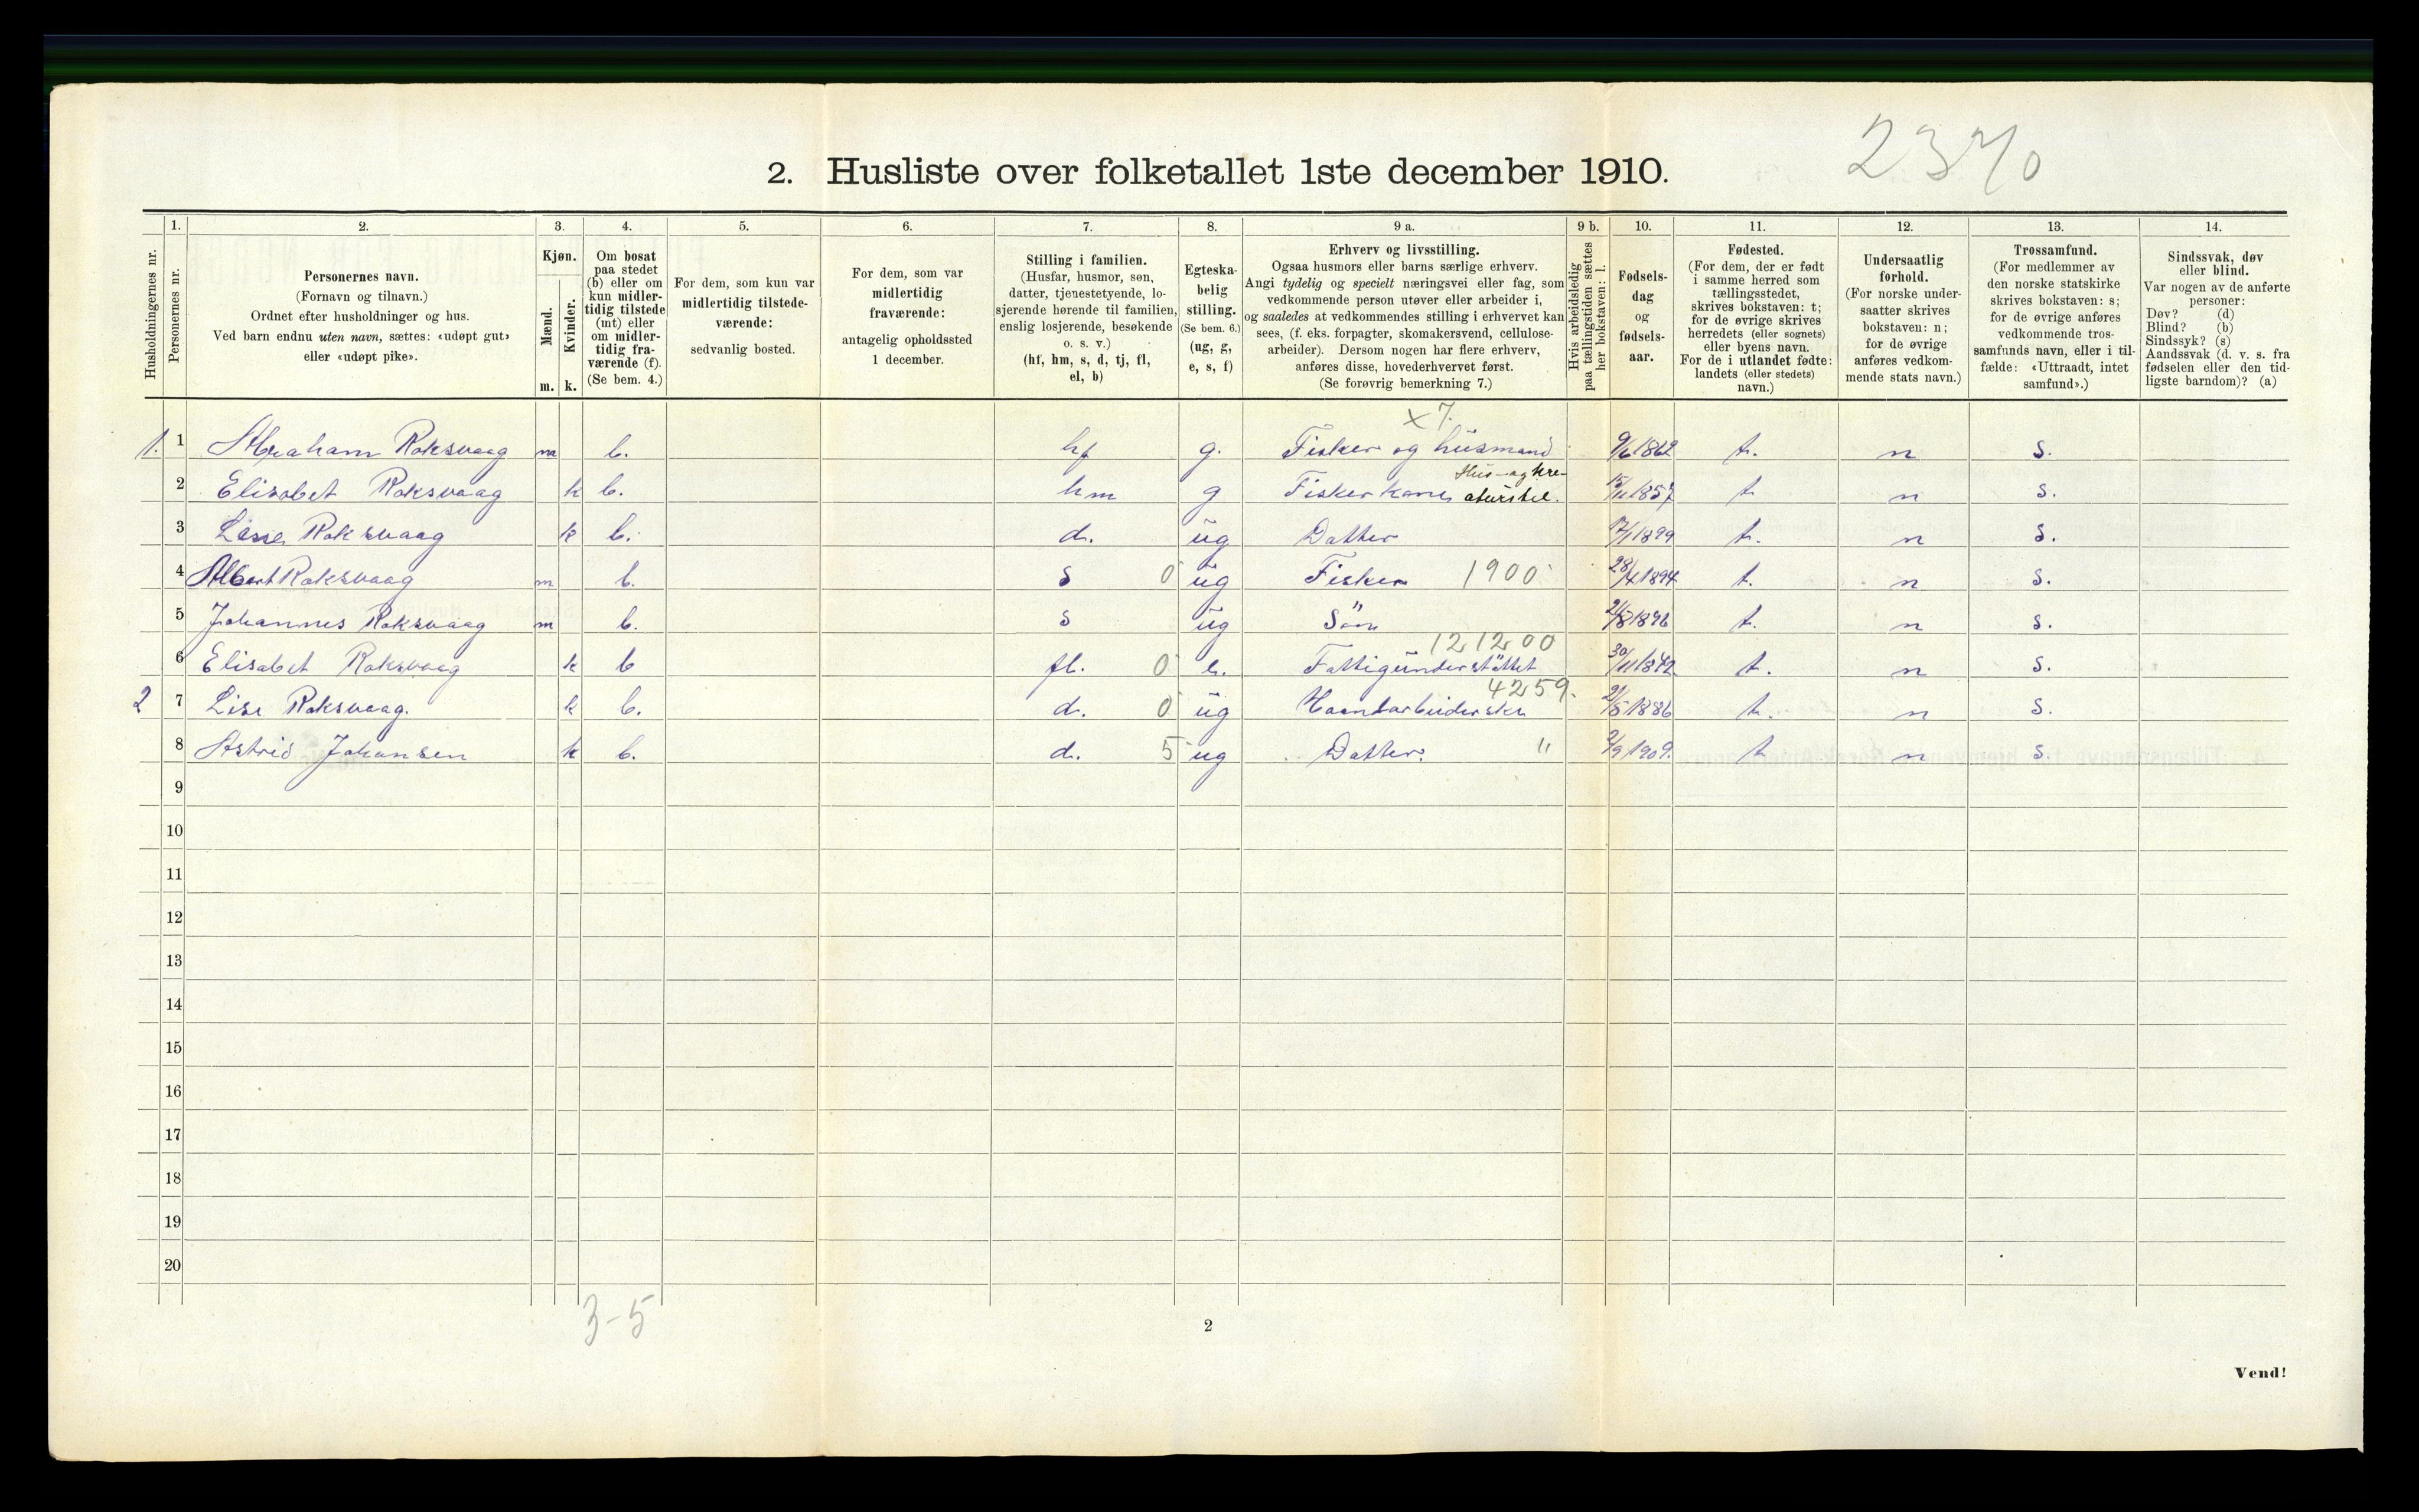 2370
2. Husliste over folketallet 1ste december 1910.
1. 2. 3. 4. 5. 6. 7. 8. 9 a. 9 b. 10. 11. 12. 13. 14.
Husholdningernes nr.
Personernes nr.
Personernes navn.
(Fornavn og tilnavn.)
Ordnet efter husholdninger og hus.
Ved barn endnu uten navn, sættes: «udøpt gut»
eller «udøpt pike».
Kjøn.
Mænd.
Kvinder.
m. k.
Om bosat
paa stedet
(b) eller om
kun midler-
tidig tilstede
(mt) eller
om midler-
tidig fra-
værende (f).
(Se bem. 4.)
For dem, som kun var
midlertidig tilstede-
værende:
sedvanlig bosted.
For dem, som var
midlertidig
fraværende:
antagelig opholdssted
1 december.
Stilling i familien.
(Husfar, husmor, søn,
datter, tjenestetyende, lo-
sjerende hørende til familien,
enslig losjerende, besøkende
o. s. v.)
(hf, hm, s, d, tj, fl,
el, b)
Egteska-
belig
stilling.
(Se bem. 6.)
(ug, g,
e, s, f)
Erhverv og livsstilling.
Ogsaa husmors eller barns særlige erhverv.
Angi tydelig og specielt næringsvei eller fag, som
vedkommende person utøver eller arbeider i,
og saaledes at vedkommendes stilling i erhvervet kan
sees, (f. eks. forpagter, skomakersvend, cellulose-
arbeider). Dersom nogen har flere erhverv,
anføres disse, hovederhvervet først.
(Se forøvrig bemerkning 7.)
Hvis arbeidsledig
paa tællingstiden sættes
her bokstaven: l.
Fødsels-
dag
og
fødsels-
aar.
Fødested.
(For dem, der er født
i samme herred som
tællingsstedet,
skrives bokstaven: t;
for de øvrige skrives
herredets (eller sognets)
eller byens navn.
For de i utlandet fødte:
landets (eller stedets)
navn.)
Undersaatlig
forhold.
(For norske under-
saatter skrives
bokstaven: n;
for de øvrige
anføres vedkom-
mende stats navn.)
Trossamfund.
(For medlemmer av
den norske statskirke
skrives bokstaven: s;
for de øvrige anføres
vedkommende tros-
samfunds navn, eller i til-
fælde: «Uttraadt, intet
samfund».)
Sindssvak, døv
eller blind.
Var nogen av de anførte
personer:
Døv? (d)
Blind? (b)
Sindssyk? (s)
Aandssvak (d. v. s. fra
fødselen eller den tid-
ligste barndom)? (a)
x 7.
1. 1 Abraham Roksvaag m b. hf g. Fisker og husmand 9/6 1862 t. n s.
Hus- og kre-
2 Elisabet Roksvaag k b. hm g Fiskerkone aturstel. 15/11 1857 t n s.
3 Roksvaag k b. d. ug Datter 17/1 1899 t. n s.
4 Albert Roksvaag m b. s 0 ug Fisker 1900 28/4 1894 t. n s.
5 Johannes Roksvaag m b. s ug Søn 1896 t. n s.
121200
6 Elisabet Roksvaag k b fl. 0 e. Fattigunderstøttet 30/11 1842 t. n s.
4259.
2 7 Lise Roksvaag. k b. d. 0 ug Haandarbeiderske 21/5 1886 t. n s.
8 Astrid Johansen k b. d. 5 ug Datter. " 2/9 1909. t n s.
9
10
11
12
13
14
15
16
17
18
19
20
3-5
2
Vend!